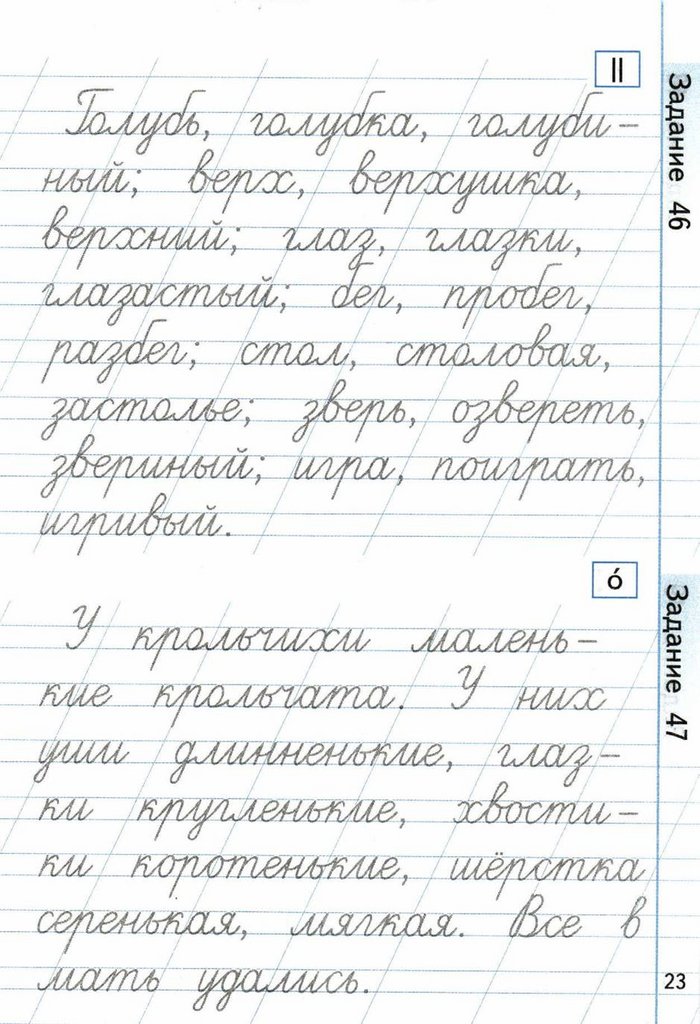 ||
Задание 46
Голубь, голубка, голуби-
ный; верх, верхушка,
верхний; глаз, глазки,
глазастый; бег, пробег,
разбег; стол, столовая,
застолье; зверь, озвереть,
звериный; игра, поиграть,
игривый.
о́
Задание 47
У крольчихи малень-
кие крольчата. У них
уши длинненькие, глаз-
ки кругленькие, хвости-
ки коротенькие, шёрстка
серенькая, мягкая. Все в
мать удались.
23